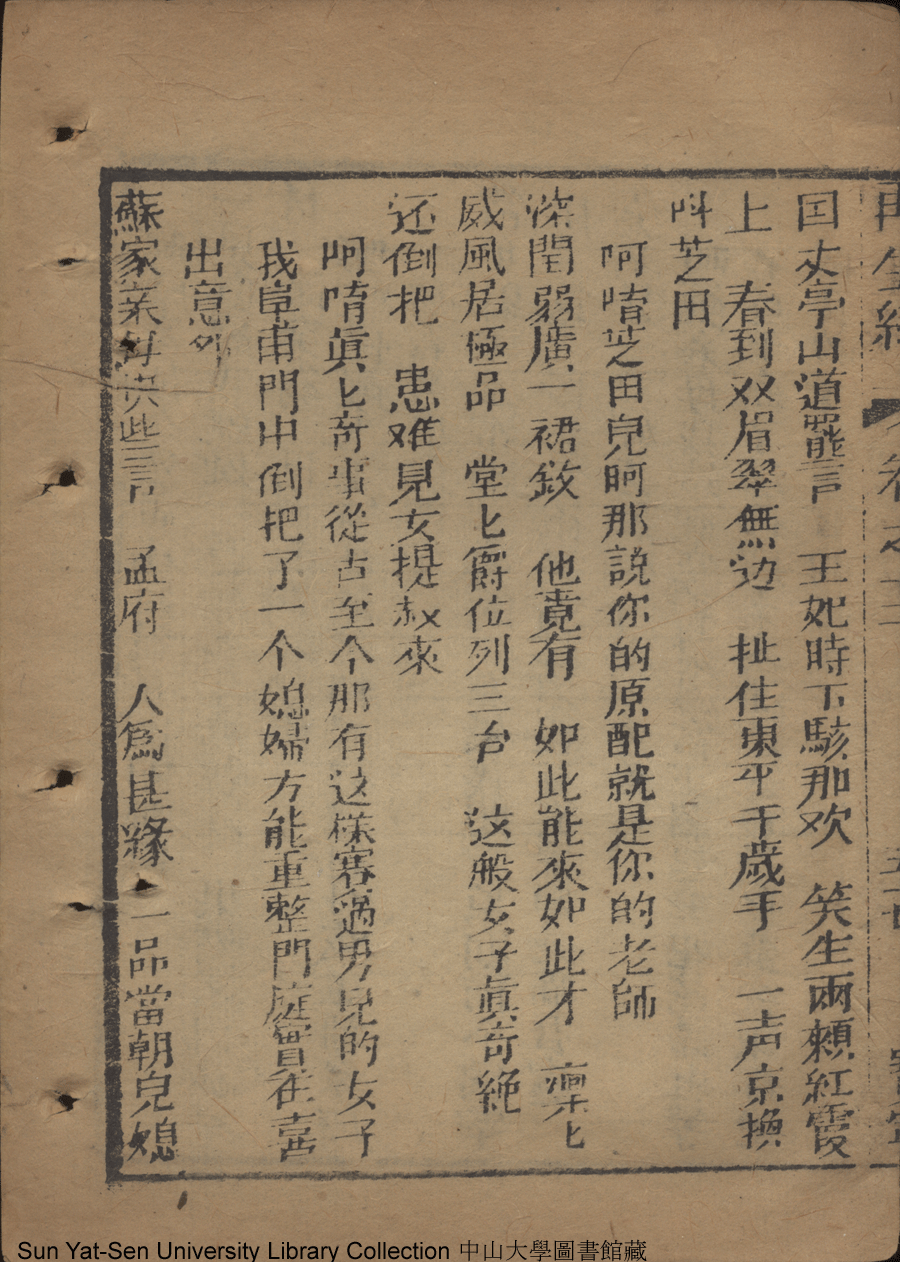 再生緣 卷之
国丈亭山道罷言 王妃時下駭那欢 笑生兩頰紅霞
上 春到双眉翠無边 扯住東平千歲手 一声京换
呌芝田
呵唷芝田皃呵那說你的原配就是你的老師
深閨弱廣一裙釵 他竟有 如此能來如此才 凛匕
威風居極品 堂匕爵位列三台 这般女子眞奇絶
还倒把 患难見女提叔來
呵唷眞匕奇事從古至今那有这樣賽過男兒的女子
我皐甫門中倒把了一个媳婦方能重整門庭實在喜
出意外
蘇家 些言 孟府 人爲甚緣 一品當朝皃媳
Sun Yat-Sen University Library Collection 中山大學圖書館藏